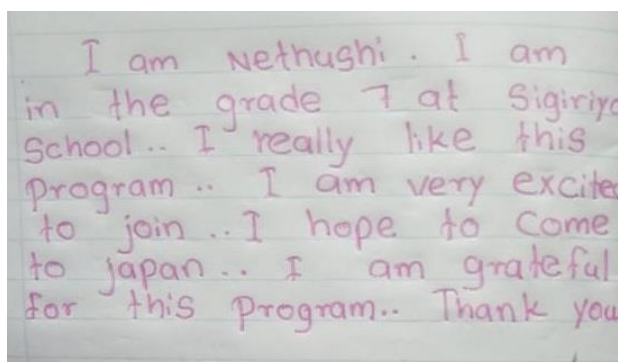 I am Nethushi. I am
in the grade 7 at Sigiriya
School.. I really like this
program.. I am very excited
to join..I hope to Come
to japan.. I am grateful
for this program.. Thank you